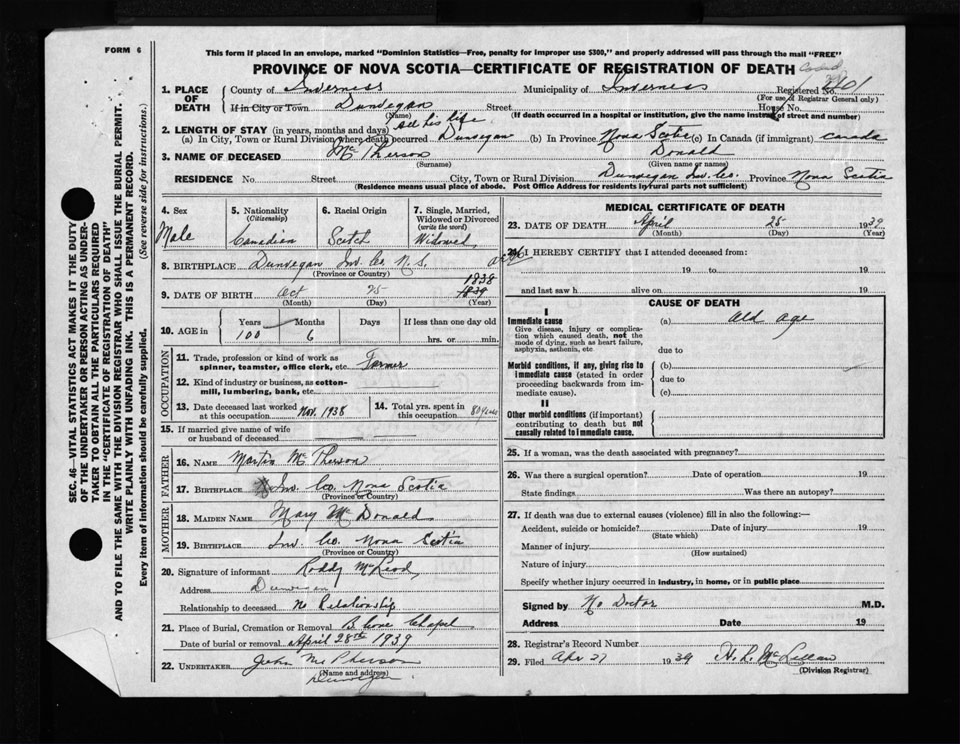 FORM 6
This form if placed in an envelope, marked "Dominion Statistics—Free, penalty for improper use $300," and properly addressed will pass through the mail "FREE"
PROVINCE OF NOVA SCOTIA—CERTIFICATE OF REGISTRATION OF DEATH
1. PLACE OF DEATH
County of Inverness Municipality of Inverness Registered No.
(For use of Registrar General only)
If in City or Town Dunvegan Street House No.
(Name) (If death occurred in a hospital or institution, give the name instead of street and number)
2. LENGTH OF STAY (in years, months and days) All his life
(a) In City, Town or Rural Division where death occurred Dunvegan (b) In Province Nova Scotia (c) In Canada (if immigrant) Canada
3. NAME OF DECEASED McPherson Donald
(Surname) (Given name or names)
RESIDENCE No. Street City, Town or Rural Division Dunvegan Inv. Co. Province Nova Scotia
(Residence means usual place of abode. Post Office Address for residents in rural parts not sufficient)
4. Sex Male
5. Nationality (Citizenship) Canadian
6. Racial Origin Scotch
7. Single, Married, Widowed or Divorced (write the word) Widowed
8. BIRTHPLACE Dunvegan Inv. Co. N. S.
(Province or Country)
9. DATE OF BIRTH Oct 25 1838 1839
(Month) (Day) (Year)
10. AGE in Years Months Days If less than one day old
100 6 hrs. or min.
OCCUPATION
11. Trade, profession or kind of work as spinner, teamster, office clerk, etc. Farmer
12. Kind of industry or business, as cotton-mill, lumbering, bank, etc.
13. Date deceased last worked at this occupation Nov. 1938
14. Total yrs. spent in this occupation 80 years
15. If married give name of wife or husband of deceased
FATHER
16. NAME Martin McPherson
17. BIRTHPLACE Inv. Co. Nova Scotia
(Province or Country)
MOTHER
18. MAIDEN NAME Mary McDonald
19. BIRTHPLACE Inv. Co. Nova Scotia
(Province or Country)
20. Signature of informant Roddy McLeod
Address Dunvegan
Relationship to deceased No Relationship
21. Place of Burial, Cremation or Removal B Cove Chapel
Date of burial or removal April 28th 1939
22. UNDERTAKER John McPherson
(Name and address)
Dunvegan
MEDICAL CERTIFICATE OF DEATH
23. DATE OF DEATH April 25 1939
(Month) (Day) (Year)
24. I HEREBY CERTIFY that I attended deceased from:
19 to 19
and last saw h alive on 19
CAUSE OF DEATH
I
Immediate cause (a) Old Age
Give disease, injury or complication which caused death, not the mode of dying, such as heart failure, asphyxia, asthenia, etc
due to
Morbid conditions, if any, giving rise to immediate cause (stated in order proceeding backwards from immediate cause).
(b)
due to
(c)
II
Other morbid conditions (if important) contributing to death but not causally related to immediate cause.
25. If a woman, was the death associated with pregnancy?
26. Was there a surgical operation? Date of operation 19
State findings Was there an autopsy?
27. If death was due to external causes (violence) fill in also the following:—
Accident, suicide or homicide? Date of injury 19
(State which)
Manner of injury
(How sustained)
Nature of injury
Specify whether injury occurred in industry, in home, or in public place
Signed by No Doctor M.D.
Address Date 19
28. Registrar's Record Number
29. Filed Apr 27 1939 H. L. McLellan
(Division Registrar)
SEC. 46—VITAL STATISTICS ACT MAKES IT THE DUTY
OF THE UNDERTAKER OR PERSON ACTING AS UNDER-
TAKER TO OBTAIN ALL THE PARTICULARS REQUIRED
IN THE "CERTIFICATE OF REGISTRATION OF DEATH"
AND TO FILE THE SAME WITH THE DIVISION REGISTRAR WHO SHALL ISSUE THE BURIAL PERMIT.
WRITE PLAINLY WITH UNFADING INK. THIS IS A PERMANENT RECORD.
Every item of information should be carefully supplied. (See reverse side for instructions.)